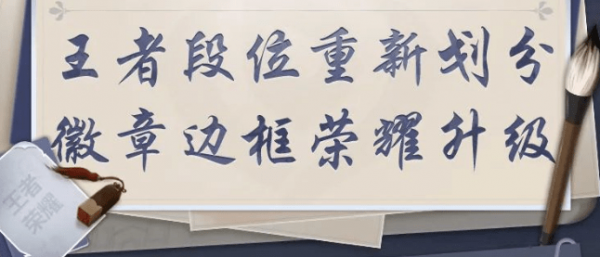 王者段位重新划分
徽章边框荣耀升级
王者
荣耀